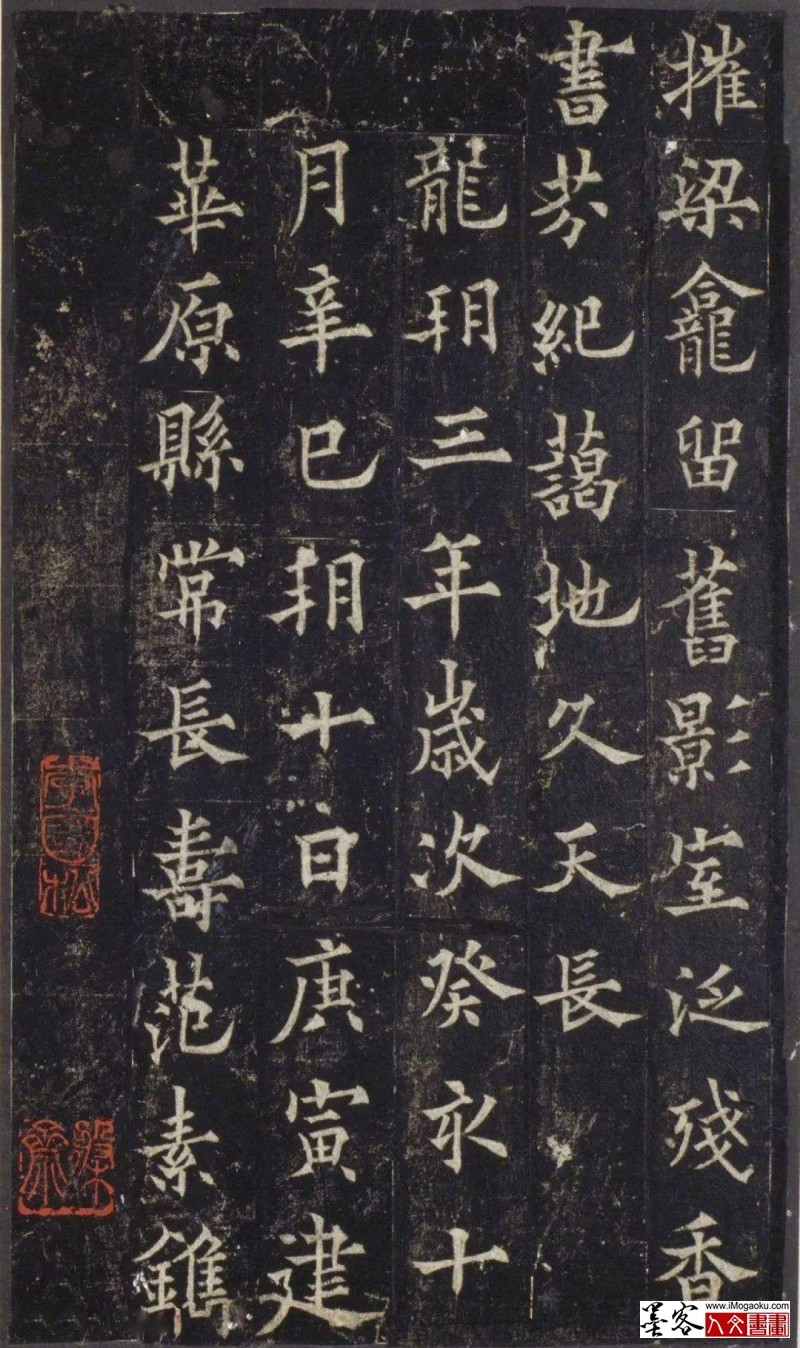 摧梁龕留舊影室泛殘香
書芬紀藹地久天長
龍朔三年歲次癸亥十
月辛巳朔十日庚寅建
華原縣常長壽范素鐫
李國松
墨客
www.iMogaoku.com
人文書畫